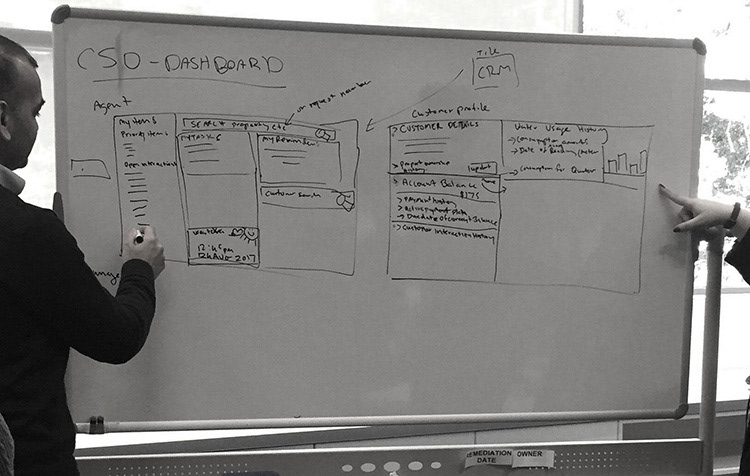 CSO - DASHBOARD
Tile
CRM
Agent
or request number
My items
Priority items
Open interactions
SEARCH property etc
MY TASKS
My Reminders
Customer Search
Weather
12:45pm
24 AUG 2017
Customer profile
> CUSTOMER DETAILS
> Property ownership
history
update
> Account Balance
$175
> Payment history
> Active payment plans
> Due date of current Balance
> Customer Interaction History
Water Usage History
> Consumption amounts
> Date of Reading/meter
> Consumption for Quarter
REMEDIATION
DATE
OWNER